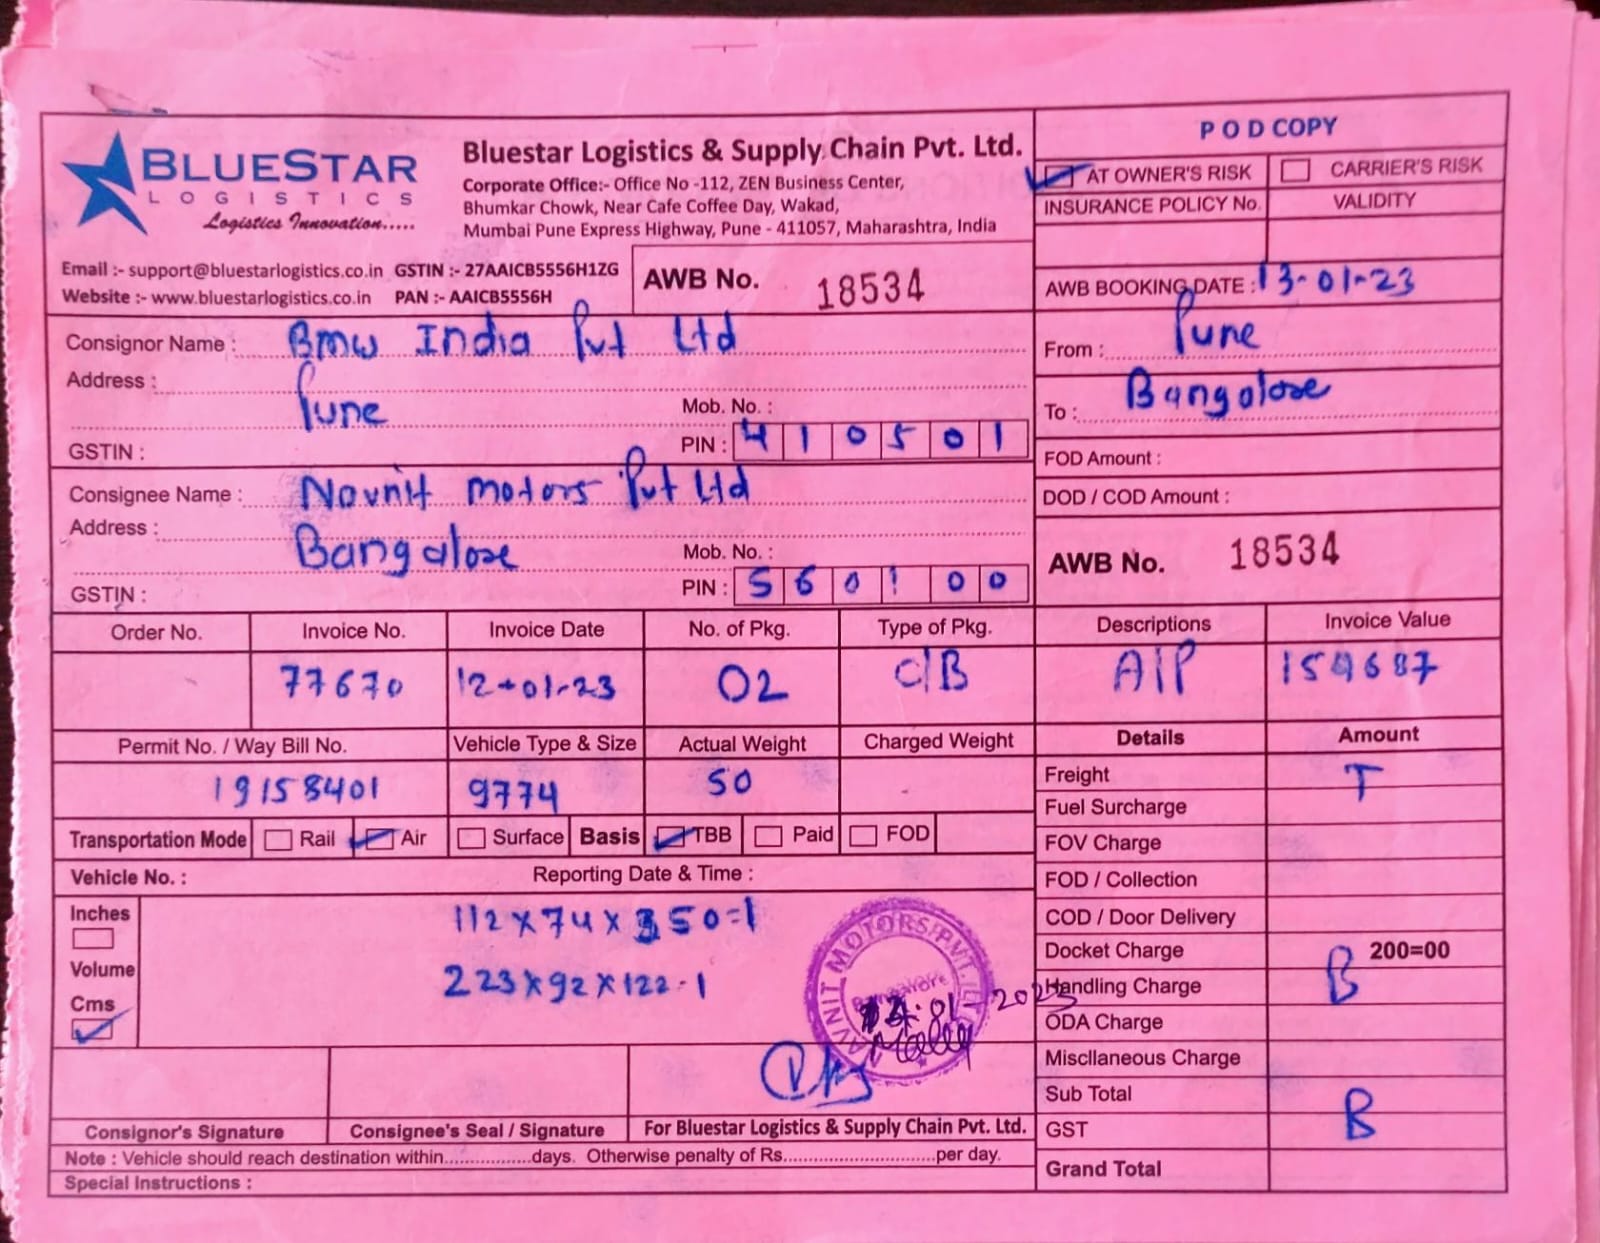 BLUESTAR
LOGISTICS
Logistics Innovation.....
Bluestar Logistics & Supply Chain Pvt. Ltd.
Corporate Office:- Office No -112, ZEN Business Center,
Bhumkar Chowk, Near Cafe Coffee Day, Wakad,
Mumbai Pune Express Highway, Pune - 411057, Maharashtra, India
Email :- support@bluestarlogistics.co.in GSTIN :- 27AAICB5556H1ZG
Website :- www.bluestarlogistics.co.in PAN :- AAICB5556H
AWB No. 18534
POD COPY
AT OWNER'S RISK CARRIER'S RISK
INSURANCE POLICY No. VALIDITY
AWB BOOKING DATE : 13-01-23
Consignor Name : Bmw India Pvt Ltd
Address :
Pune Mob. No. :
GSTIN : PIN : 410501
From : Pune
To : Bangalose
Consignee Name : Novnit motors Pvt Ltd
Address :
Bangalose Mob. No. :
GSTIN : PIN : 560100
FOD Amount :
DOD / COD Amount :
AWB No. 18534
Order No. Invoice No. Invoice Date No. of Pkg. Type of Pkg. Descriptions Invoice Value
77670 12-01-23 02 C/B A/P 154687
Permit No. / Way Bill No. Vehicle Type & Size Actual Weight Charged Weight
19158401 9774 50
Transportation Mode Rail Air Surface Basis TBB Paid FOD
Vehicle No. : Reporting Date & Time :
Inches
Volume
Cms
112 x 74 x 350=1
223 x 92 x 122-1
Details Amount
Freight T
Fuel Surcharge
FOV Charge
FOD / Collection
COD / Door Delivery
Docket Charge 200=00
Handling Charge B
ODA Charge
Miscllaneous Charge
Sub Total
GST B
Grand Total
MOTORS PVT.
Bangalore
Consignor's Signature Consignee's Seal / Signature For Bluestar Logistics & Supply Chain Pvt. Ltd.
Note : Vehicle should reach destination within................days. Otherwise penalty of Rs............................per day.
Special Instructions :